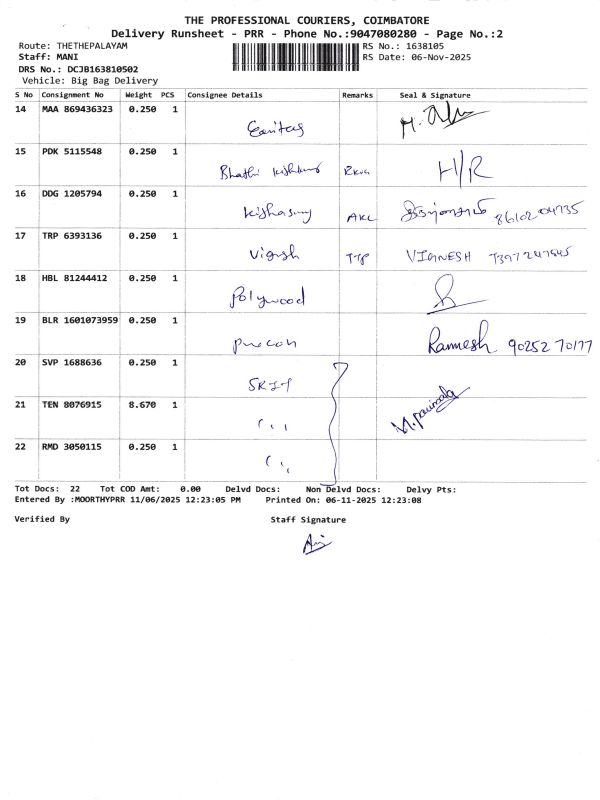 THE PROFESSIONAL COURIERS, COIMBATORE
Delivery Runsheet - PRR - Phone No.:9047080280 - Page No.:2
Route: THETHEPALAYAM RS No.: 1638105
Staff: MANI RS Date: 06-Nov-2025
DRS No.: DCJB163810502
Vehicle: Big Bag Delivery
S No Consignment No Weight PCS Consignee Details Remarks Seal & Signature
14 MAA 869436323 0.250 1
15 PDK 5115548 0.250 1 H/R
16 DDG 1205794 0.250 1 AKL 86102 04735
17 TRP 6393136 0.250 1 Vignesh TTP VIGNESH
18 HBL 81244412 0.250 1 Polywood
19 BLR 1601073959 0.250 1 Ramesh 90252 70177
20 SVP 1688636 0.250 1 SRIT
21 TEN 8076915 8.670 1 M. Parimala
22 RMD 3050115 0.250 1
Tot Docs: 22 Tot COD Amt: 0.00 Delvd Docs: Non Delvd Docs: Delvy Pts:
Entered By :MOORTHYPRR 11/06/2025 12:23:05 PM Printed On: 06-11-2025 12:23:08
Verified By Staff Signature